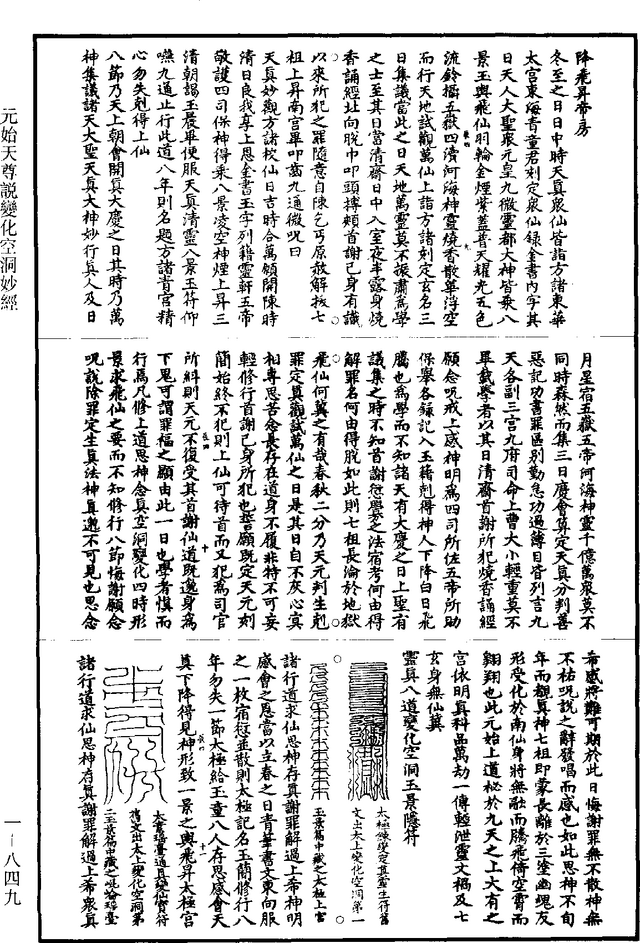 降飛昇帝房
冬至之日日中時天真衆仙皆詣方諸東華
太宮東海青童君刻定衆仙錄金書內字其
日天人大聖衆元皇九微靈都大神皆乘八
景玉輿飛仙羽輪金煙紫蓋普天耀光五色
流鈴攝五嶽四瀆河海神靈燒香散華浮空
而行天地試觀萬仙上詣方諸刻定玄名三
日集議當此之日天地萬靈莫不振肅爲學
之士至其日當清齋日中入室夜半露身燒
香誦經北向脫巾叩頭搏頰首謝己身有識
以來所犯之罪隨意自陳乞丐原赦解拔七
祖上昇南宮畢叩齒九通微呪曰
天真妙觀方諸校仙日吉時合萬願開陳時
清日良我享上恩金書玉字列籍靈軒五帝
敬護四司保神得乘八景凌空神煙上昇三
清朝謁玉晨畢便服天真清靈八景玉符仰
嚥九過止行此道八年則名題方諸青宮精
心勿失剋得上仙
八節乃天上朝會開真大慶之日其時乃萬
神集議諸天大聖天真大神妙行真人及日
月星宿五嶽五帝河海神靈千億萬衆莫不
同時森然而集三日慶會算定天真分判善
惡記功書罪區別勤怠功過簿目皆列言九
天各副三宮九府司命上曹大小輕重莫不
畢載學者以其日清齋首謝所犯燒香誦經
願念呪戒上感神明爲四司所佐五帝所助
保舉各錄記入玉籍剋得神人下降白日飛
騰也爲學而不知諸天有大慶之日上聖有
議集之時不知首謝愆釁之法宿考何由得
解罪名何由得脫如此則七祖長淪於地獄
飛仙何冀之有哉春秋二分乃天元判生剋
罪定真觀試萬仙之日是其日自不灰心冥
相專思苦念長存在道身不履非特不可妄
輕修行首謝己身所犯也誓願既定天元刻
簡始終不犯則上仙可待首而又犯爲司官
所糾則天元不復受其首謝仙道既邈身爲
下鬼可謂罪福之願由此一日也學者慎而
行焉凡修上道思神念真空洞變化四時形
景求飛仙之要而不知修行八節悔謝願念
呪說除罪定生真法神真邈不可見也思念
希感將難可期於此日悔謝罪無不散神無
不祐呪說之辭發唱而感也如此思神不旬
年而覩真神七祖即蒙長離於三塗幽魂友
形受化於南仙身將無翮而騰飛倚空霄而
翱翔也此元始上道秘於九天之上大有之
宮依明真科品萬劫一傳輕泄靈文禍及七
玄身無仙冀
靈真八道變化空洞玉景隱符
太極錄學定真靈生符舊
文出太上變化空洞第一
玉景篇中藏之太極上宮
諸行道求仙思神存真謝罪解過上希神明
感會之恩當以立春之日青華書文東向服
之一枚宿愆並散則太極記名玉簡修行八
年勿失一節太極給玉童八人存思感會天
真下降得見神形致一景之輿飛昇太極宮
太素瑤臺通真變仙寶符
舊文出太上變化空洞第
二玉景篇中藏之崆峒瑤臺
諸行道求仙思神存真謝罪解過上希衆真
元始天尊說變化空洞妙經
一—八四九